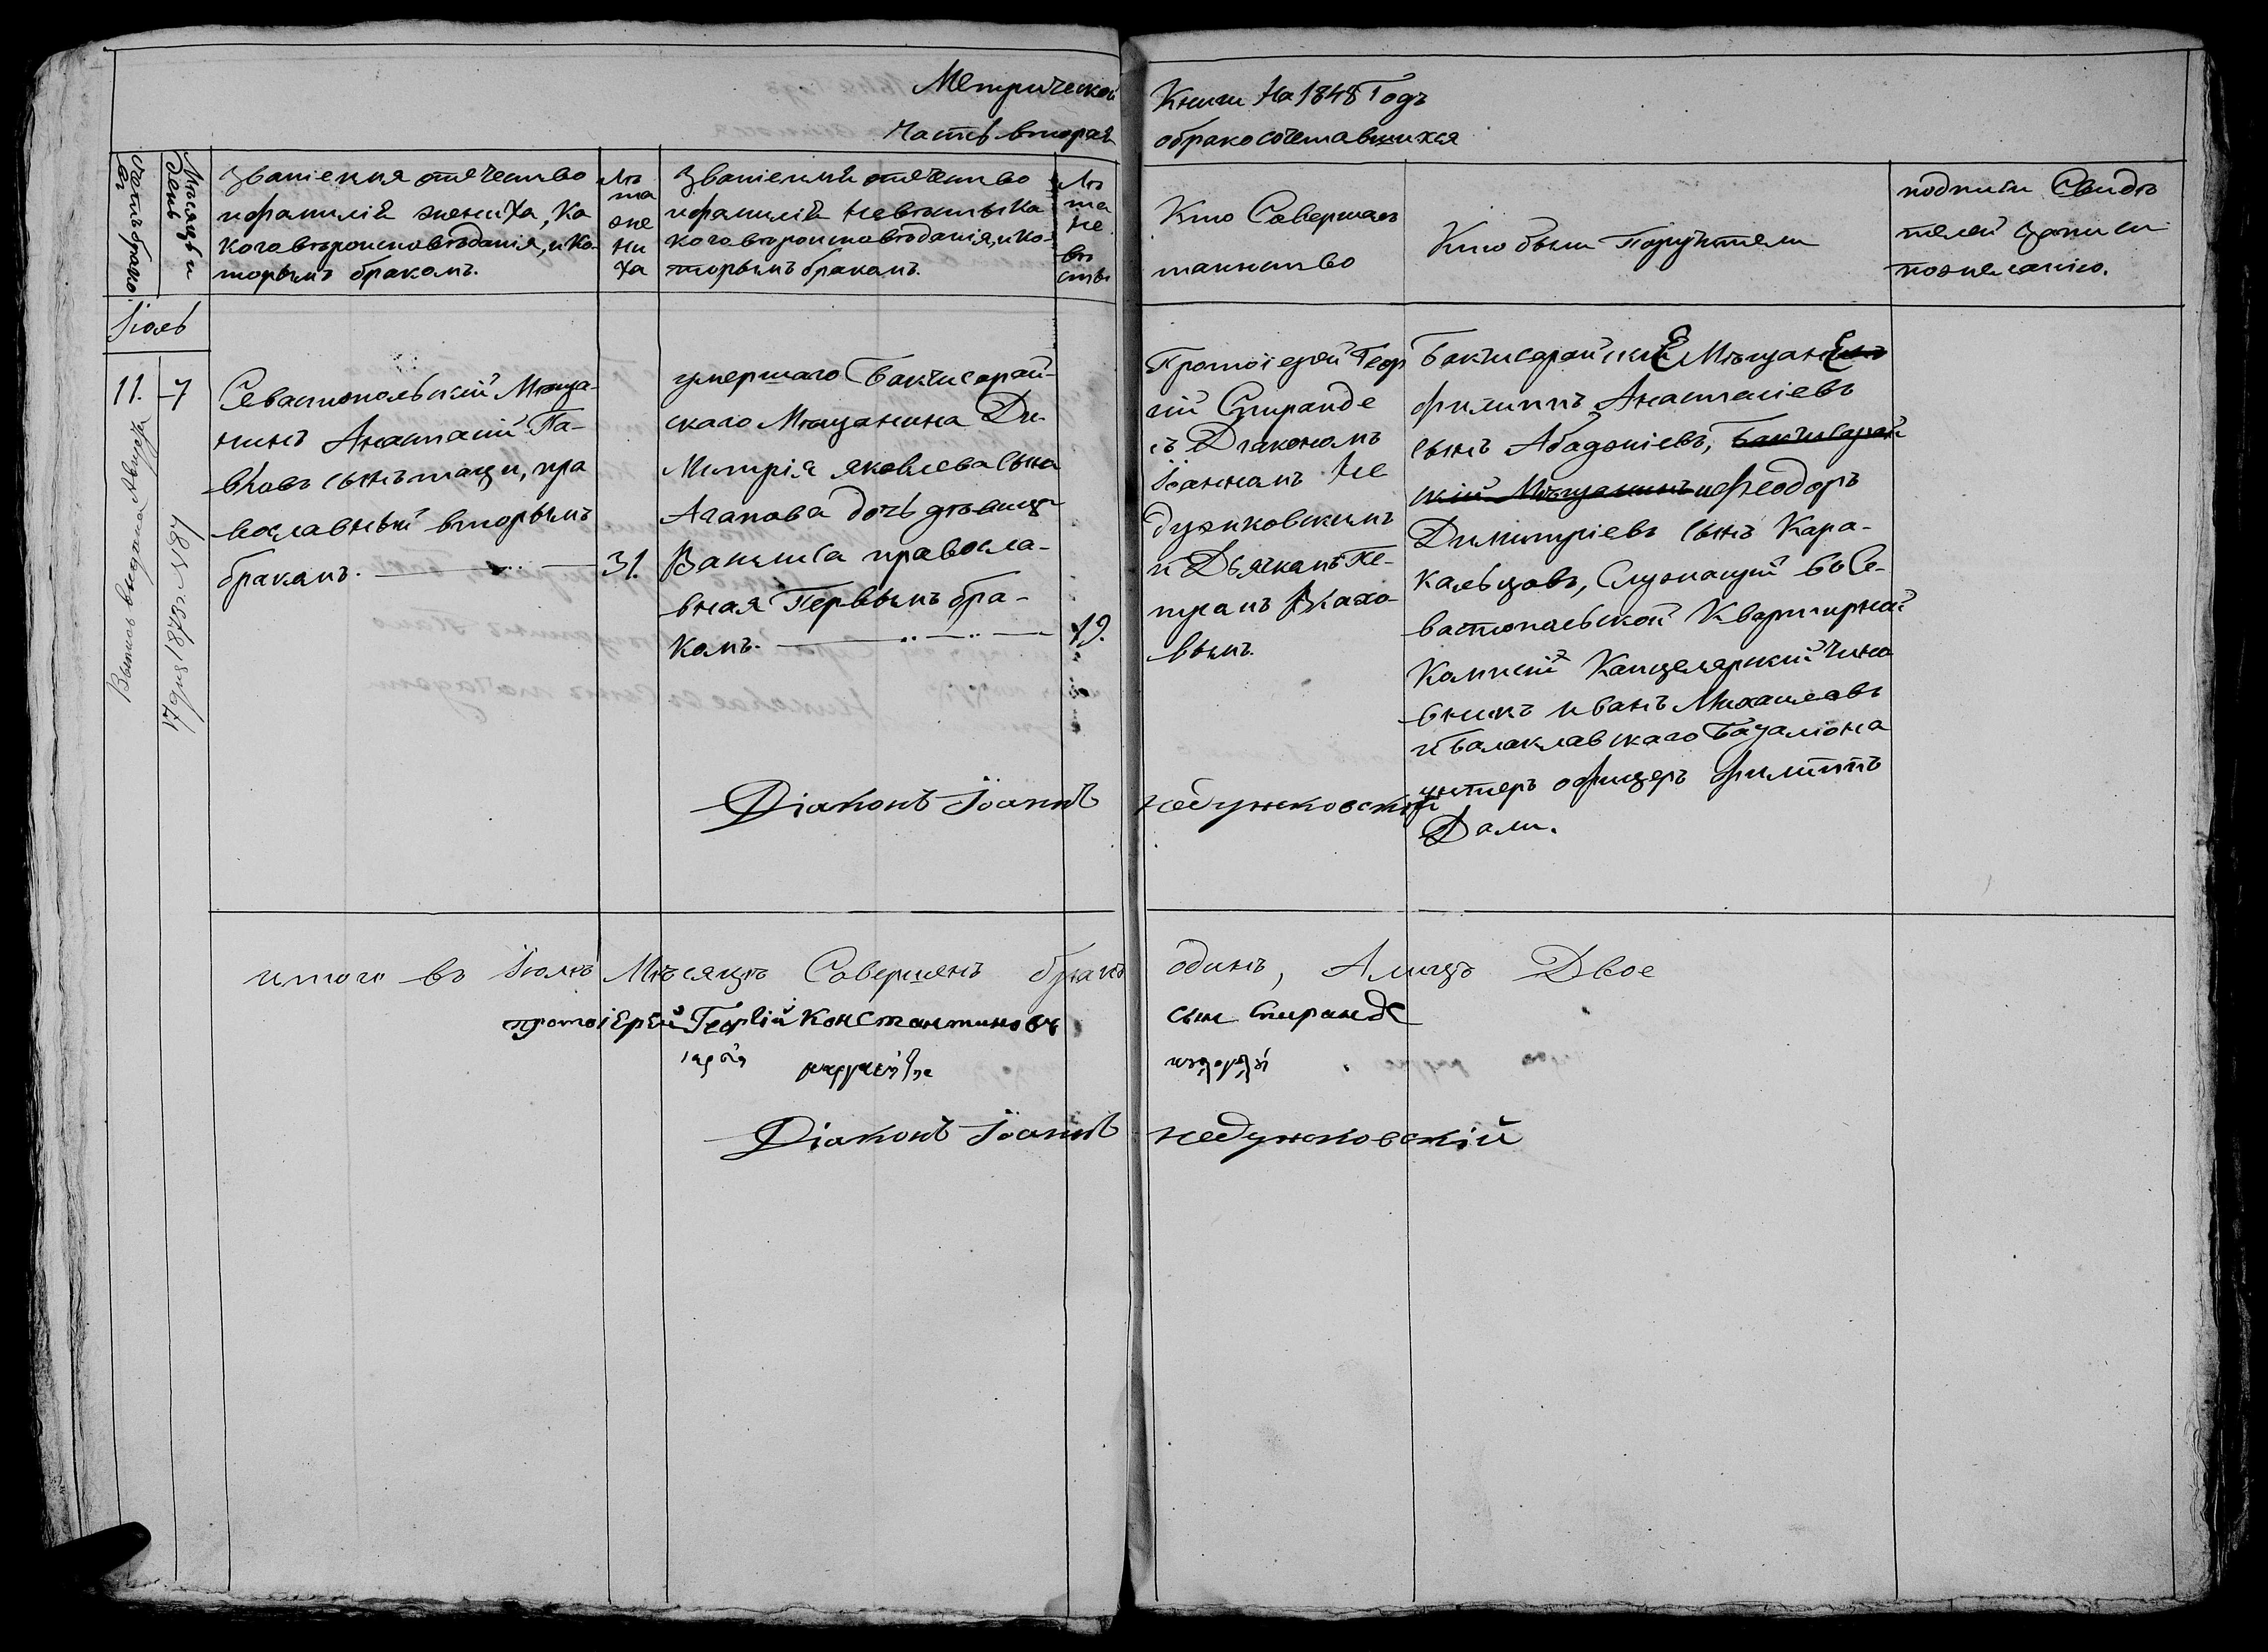 Метрической
Часть вторая
Книги на 1848 Годъ
о бракосочетавшихся
Счетъ браковъ
Мѣсяцъ и день
Званіе имя отечество
и фамилій жениха, ка
кого вѣроисповѣданія, и ко-
торымъ бракомъ.
Лѣ
та
же
ни
ха
Званіе имя отечество
и фамилій невѣсты ка
кого вѣроисповѣданія, и ко-
торымъ бракомъ.
Лѣ
та
не
вѣ
сты
Кто Совершалъ
таинство
Кто были Поручители
подписи Свидѣ
телей записи
по желанію.
Іюль
11.
7
Выпись выдана
17 дня 1873 г. № 187
Севастопольскій Мѣща-
нинъ Анастасій Па-
вловъ сынъ пра
вославный вторымъ
бракомъ.
31.
умершаго Бакчисарай-
скаго Мѣщанина Ди-
митрія Яковлева сына
Агапова дочь дѣвица
Василиса правосла-
вная Первымъ бра-
комъ.
19.
Протоіерей Геор
гій Спиранде
съ Діакономъ
Іоанномъ Не
дужковскимъ
и Дьячкомъ Пе-
тромъ Влахо-
вымъ.
Бакчисарайскіе Мѣщане
Филиппъ Анастасіевъ
сынъ Абаджіевъ, Бакчисарай
скій Мѣщанинъ и Феодоръ
Димитріевъ сынъ Кара-
кальцовъ, Служащій въ Се-
вастопольской Квартирной
Комисіи Канцелярскій Чино
вникъ Иванъ Михаиловъ
и Балаклавскаго Баталіона
унтеръ офицеръ Филиппъ
Дали.
Діаконъ Іоаннъ Недужковскій
итого въ Іюлѣ Мѣсяцѣ Совершенъ бракъ одинъ, А лицъ Двое
протоіерей Георгій Константиновъ сынъ Спиранде
Діаконъ Іоаннъ Недужковскій